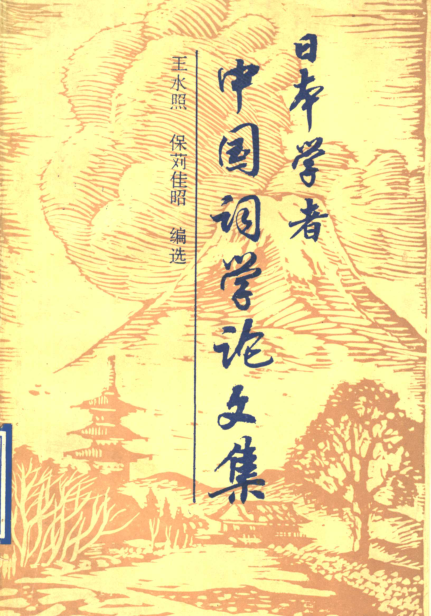 日本学者
中国词学论文集
王水照 保苅佳昭 编选